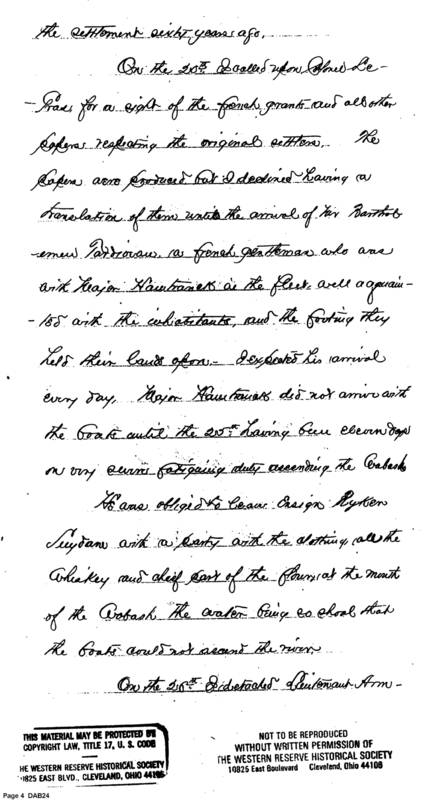 the settlement sixty years ago.
On the 20th I called upon Colonel Le-
-Gras for a sight of the french grants and all other
papers respecting the original settlers. The
papers were produced but I declined having a
translation of them until the arrival of Mr Barthol-
-emew Tardiveau, a french gentleman who was
with Major Hamtramck in the fleet, well acquain-
-ted with the inhabitants, and the footing they
held their lands upon - I expected his arrival
every day. Major Hamtramck did not arrive with
the boats until the 25th having been eleven days
on very severe fatiguing duty ascending the Wabash
He was obliged to leave Ensign Ryker
Suydam with a party with the clothing, all the
Whiskey and cheif part of the flour, at the mouth
of the Wabash the water being so shoal that
the boats could not ascend the river
On the 26th I detached Lieutenant Arm-
THIS MATERIAL MAY BE PROTECTED BY
COPYRIGHT LAW, TITLE 17, U. S. CODE
HE WESTERN RESERVE HISTORICAL SOCIETY
10825 EAST BLVD., CLEVELAND, OHIO 44106
NOT TO BE REPRODUCED
WITHOUT WRITTEN PERMISSION OF
THE WESTERN RESERVE HISTORICAL SOCIETY
10825 East Boulevard Cleveland, Ohio 44106
Page 4 DAB24